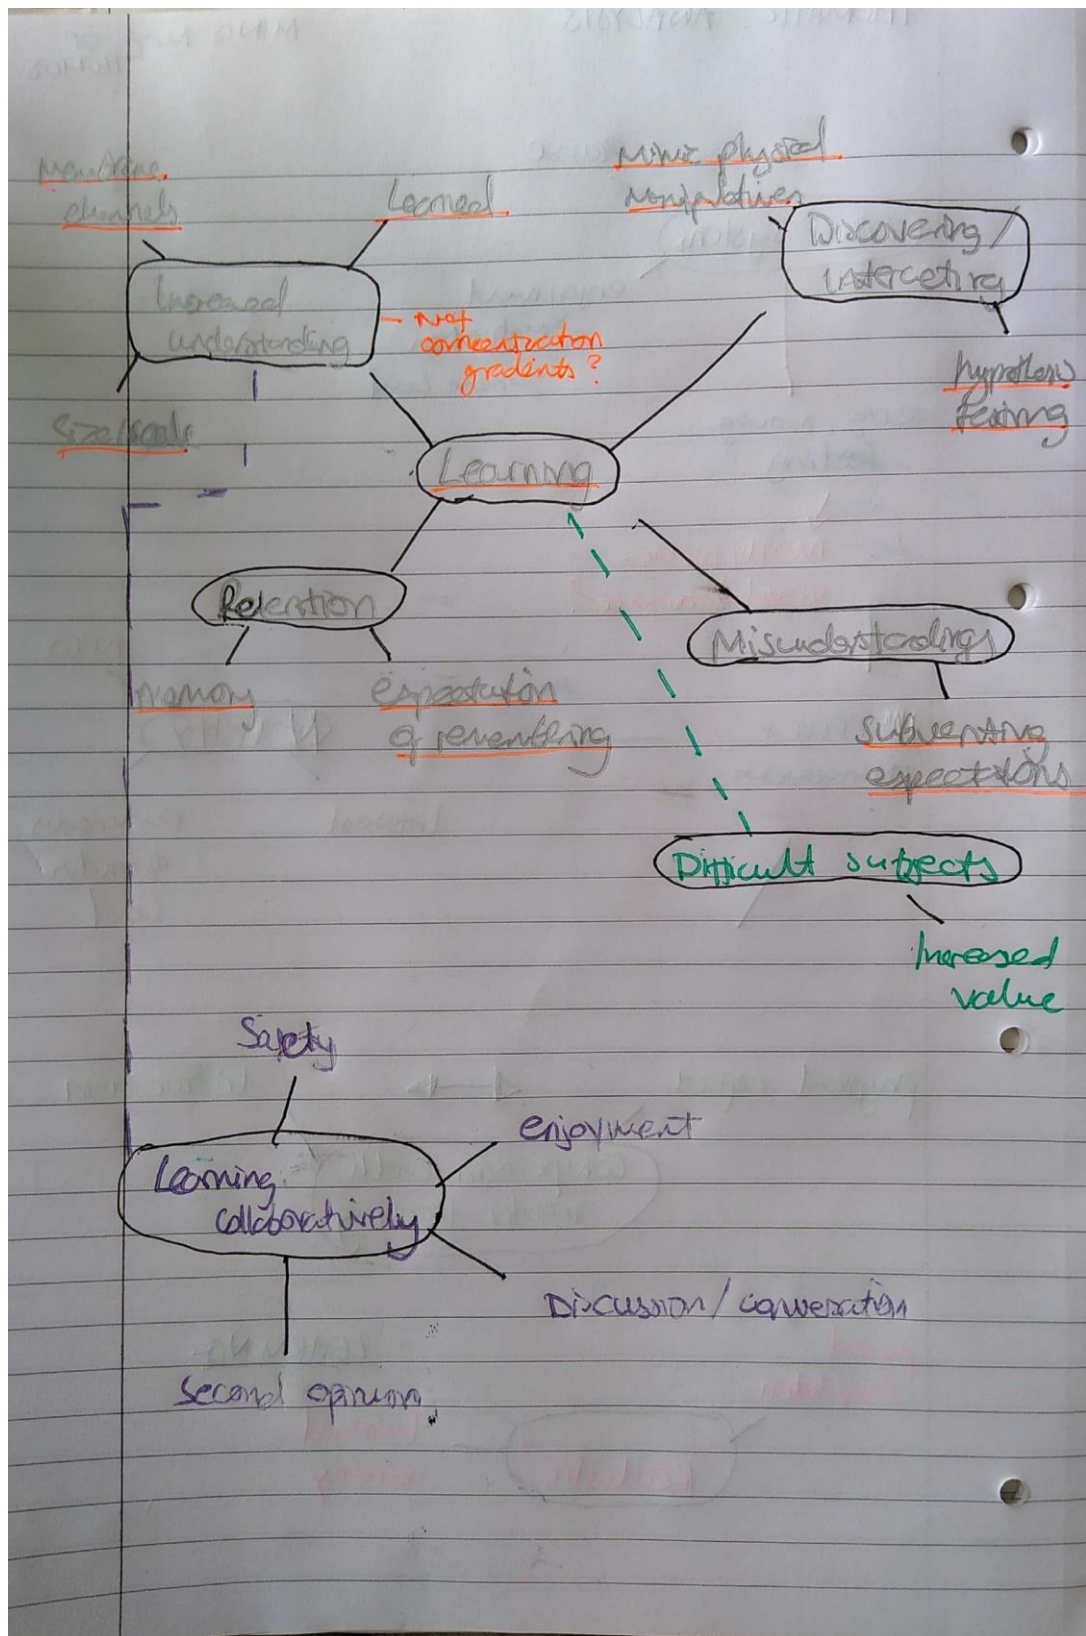 Membrane
channels
Learned
Mimic physical
manipulatives
Discovering /
interacting
Increased
understanding
Not
concentration
gradients?
hypothesis
testing
Size/scale
Learning
Retention
Misunderstandings
memory
expectation
of remembering
subverting
expectations
Difficult subjects
Increased
value
Safety
enjoyment
Learning
collaboratively
Discussion / conversation
second opinion